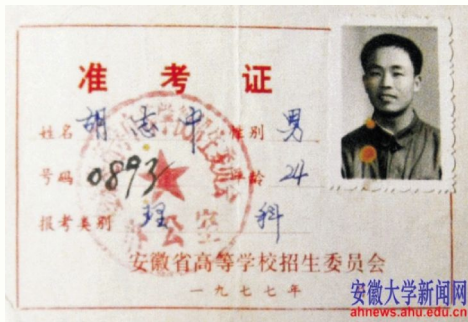 准考证
姓名 胡志中 性别 男
号码 0893 年龄 24
报考类别 理科
安徽省高等学校招生委员会
一九七七年
安徽大学新闻网
ahnews.ahu.edu.cn